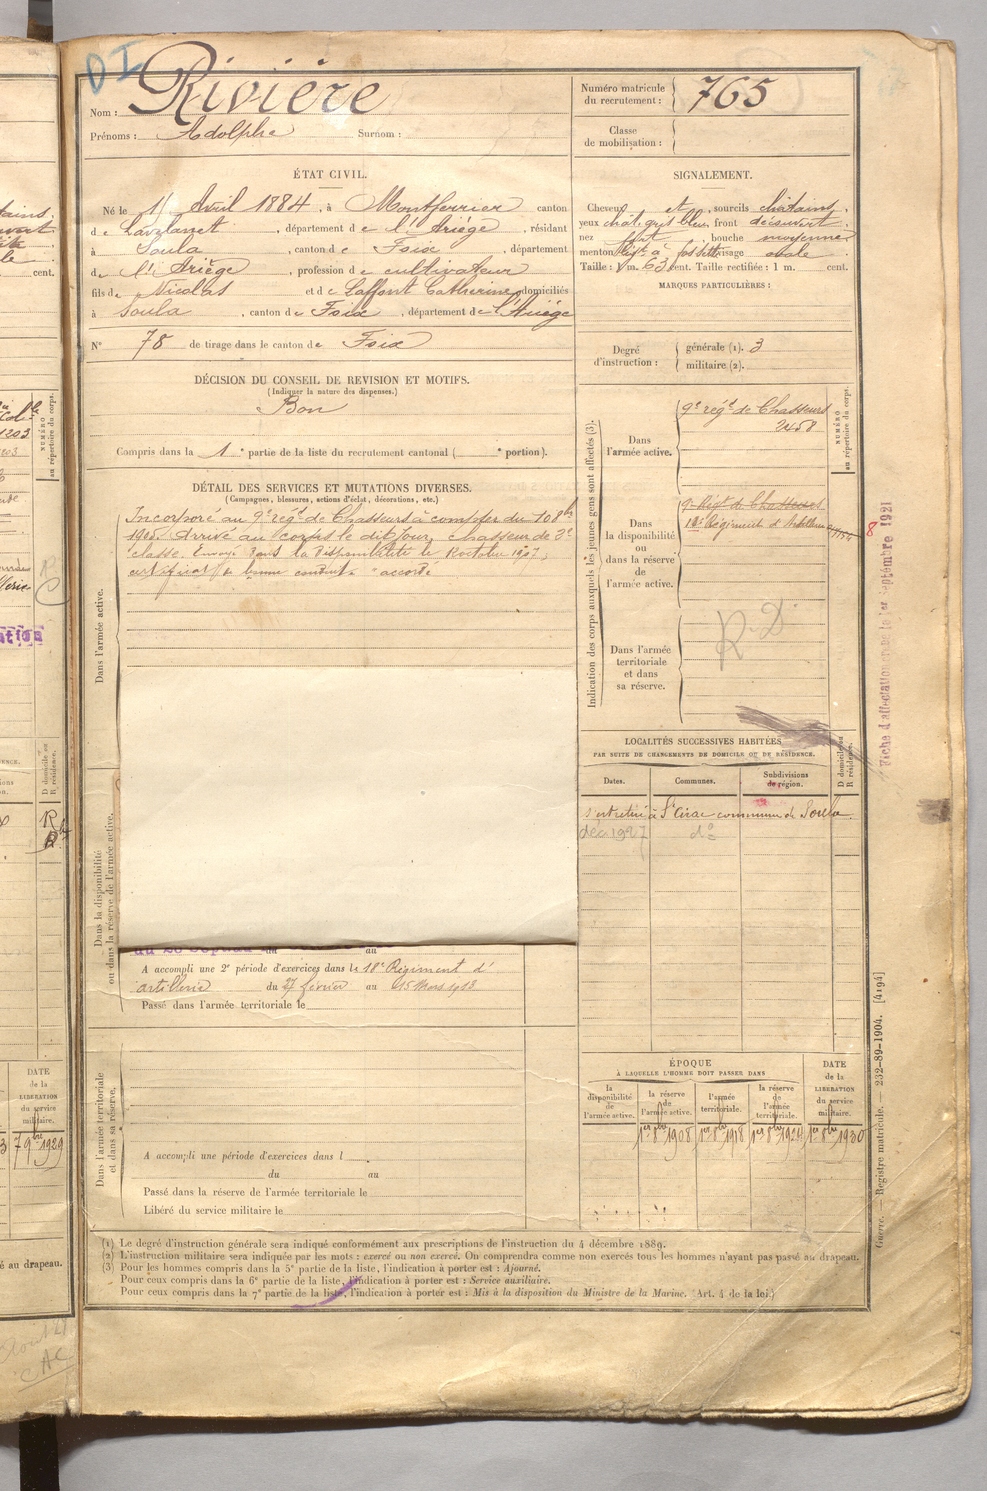 DI
Nom : Rivière
Prénoms : Adolphe Surnom :
Numéro matricule du recrutement : 765
Classe de mobilisation :
ÉTAT CIVIL.
Né le 1er Avril 1884, à Montferrier canton
de Lavelanet, département de l'Ariège, résidant
à Soula, canton de Foix, département
de l'Ariège, profession de cultivateur
fils de Nicolas et de Laffont Catherine domiciliés
à Soula, canton de Foix, département de l'Ariège
N° 78 de tirage dans le canton de Foix
SIGNALEMENT.
Cheveux et sourcils châtains,
yeux chât. gris bleu, front découvert
nez fort, bouche moyenne
menton à fossette visage ovale
Taille : 1 m. 63 cent. Taille rectifiée : 1 m. cent.
MARQUES PARTICULIÈRES :
Degré d'instruction : générale (1). 3
militaire (2).
DÉCISION DU CONSEIL DE REVISION ET MOTIFS.
(Indiquer la nature des dispenses.)
Bon
Compris dans la 1e partie de la liste du recrutement cantonal ( e portion).
DÉTAIL DES SERVICES ET MUTATIONS DIVERSES.
(Campagnes, blessures, actions d'éclat, décorations, etc.)
Dans l'armée active.
Incorporé au 9e régt de Chasseurs à compter du 10 8bre
1905. Arrivé au corps le dit jour, chasseur de 2e
classe. Envoyé dans la disponibilité le 1907,
certificat de bonne conduite accordé
Dans la disponibilité ou dans la réserve de l'armée active.
du au
A accompli une 2e période d'exercices dans le 18e Régiment d'
artillerie du 27 février au 15 Mars 1913
Passé dans l'armée territoriale le
Dans l'armée territoriale et dans sa réserve.
A accompli une période d'exercices dans l
du au
Passé dans la réserve de l'armée territoriale le
Libéré du service militaire le
Indication des corps auxquels les jeunes gens sont affectés (3).
NUMÉRO au répertoire du corps.
Dans l'armée active.
9e régt de Chasseurs
2458
Dans la disponibilité ou dans la réserve de l'armée active.
9e Régt de Chasseurs
18e Régiment d'Artillerie
8
Dans l'armée territoriale et dans sa réserve.
R.D
Fiche d'affectation 1er Septembre 1921
LOCALITÉS SUCCESSIVES HABITÉES
PAR SUITE DE CHANGEMENTS DE DOMICILE OU DE RÉSIDENCE.
Dates. Communes. Subdivisions de région. D domicile ou R résidence.
s'est retiré à St Cirac commune de Soula
déc 1927 do
ÉPOQUE
À LAQUELLE L'HOMME DOIT PASSER DANS
la disponibilité de l'armée active.
la réserve de l'armée active.
l'armée territoriale.
la réserve de l'armée territoriale.
DATE de la LIBÉRATION du service militaire.
1er 8bre 1908 1er 8bre 1918 1er 8bre 1924 1er 8bre 1930
(1) Le degré d'instruction générale sera indiqué conformément aux prescriptions de l'instruction du 4 décembre 1889.
(2) L'instruction militaire sera indiquée par les mots : exercé ou non exercé. On comprendra comme non exercés tous les hommes n'ayant pas passé au drapeau.
(3) Pour les hommes compris dans la 5e partie de la liste, l'indication à porter est : Ajourné.
Pour ceux compris dans la 6e partie de la liste, l'indication à porter est : Service auxiliaire.
Pour ceux compris dans la 7e partie de la liste, l'indication à porter est : Mis à la disposition du Ministre de la Marine. (Art. 4 de la loi.)
Guerre. — Registre matricule. — 232-89-1904. [4194]
cent.
NUMÉRO au répertoire du corps.
D domicile ou R résidence.
DATE de la LIBÉRATION du service militaire.
9bre 1929
é au drapeau.
CAC